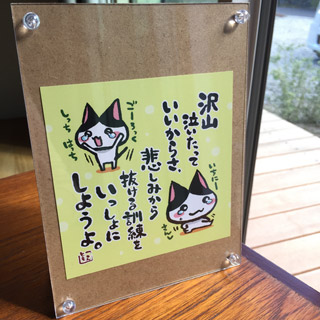 沢山
泣いたって
いいからさ、
悲しみから
抜ける訓練を
いっしょに
しようよ。
ごーろっく
しっち はっち
いちにー
さんし